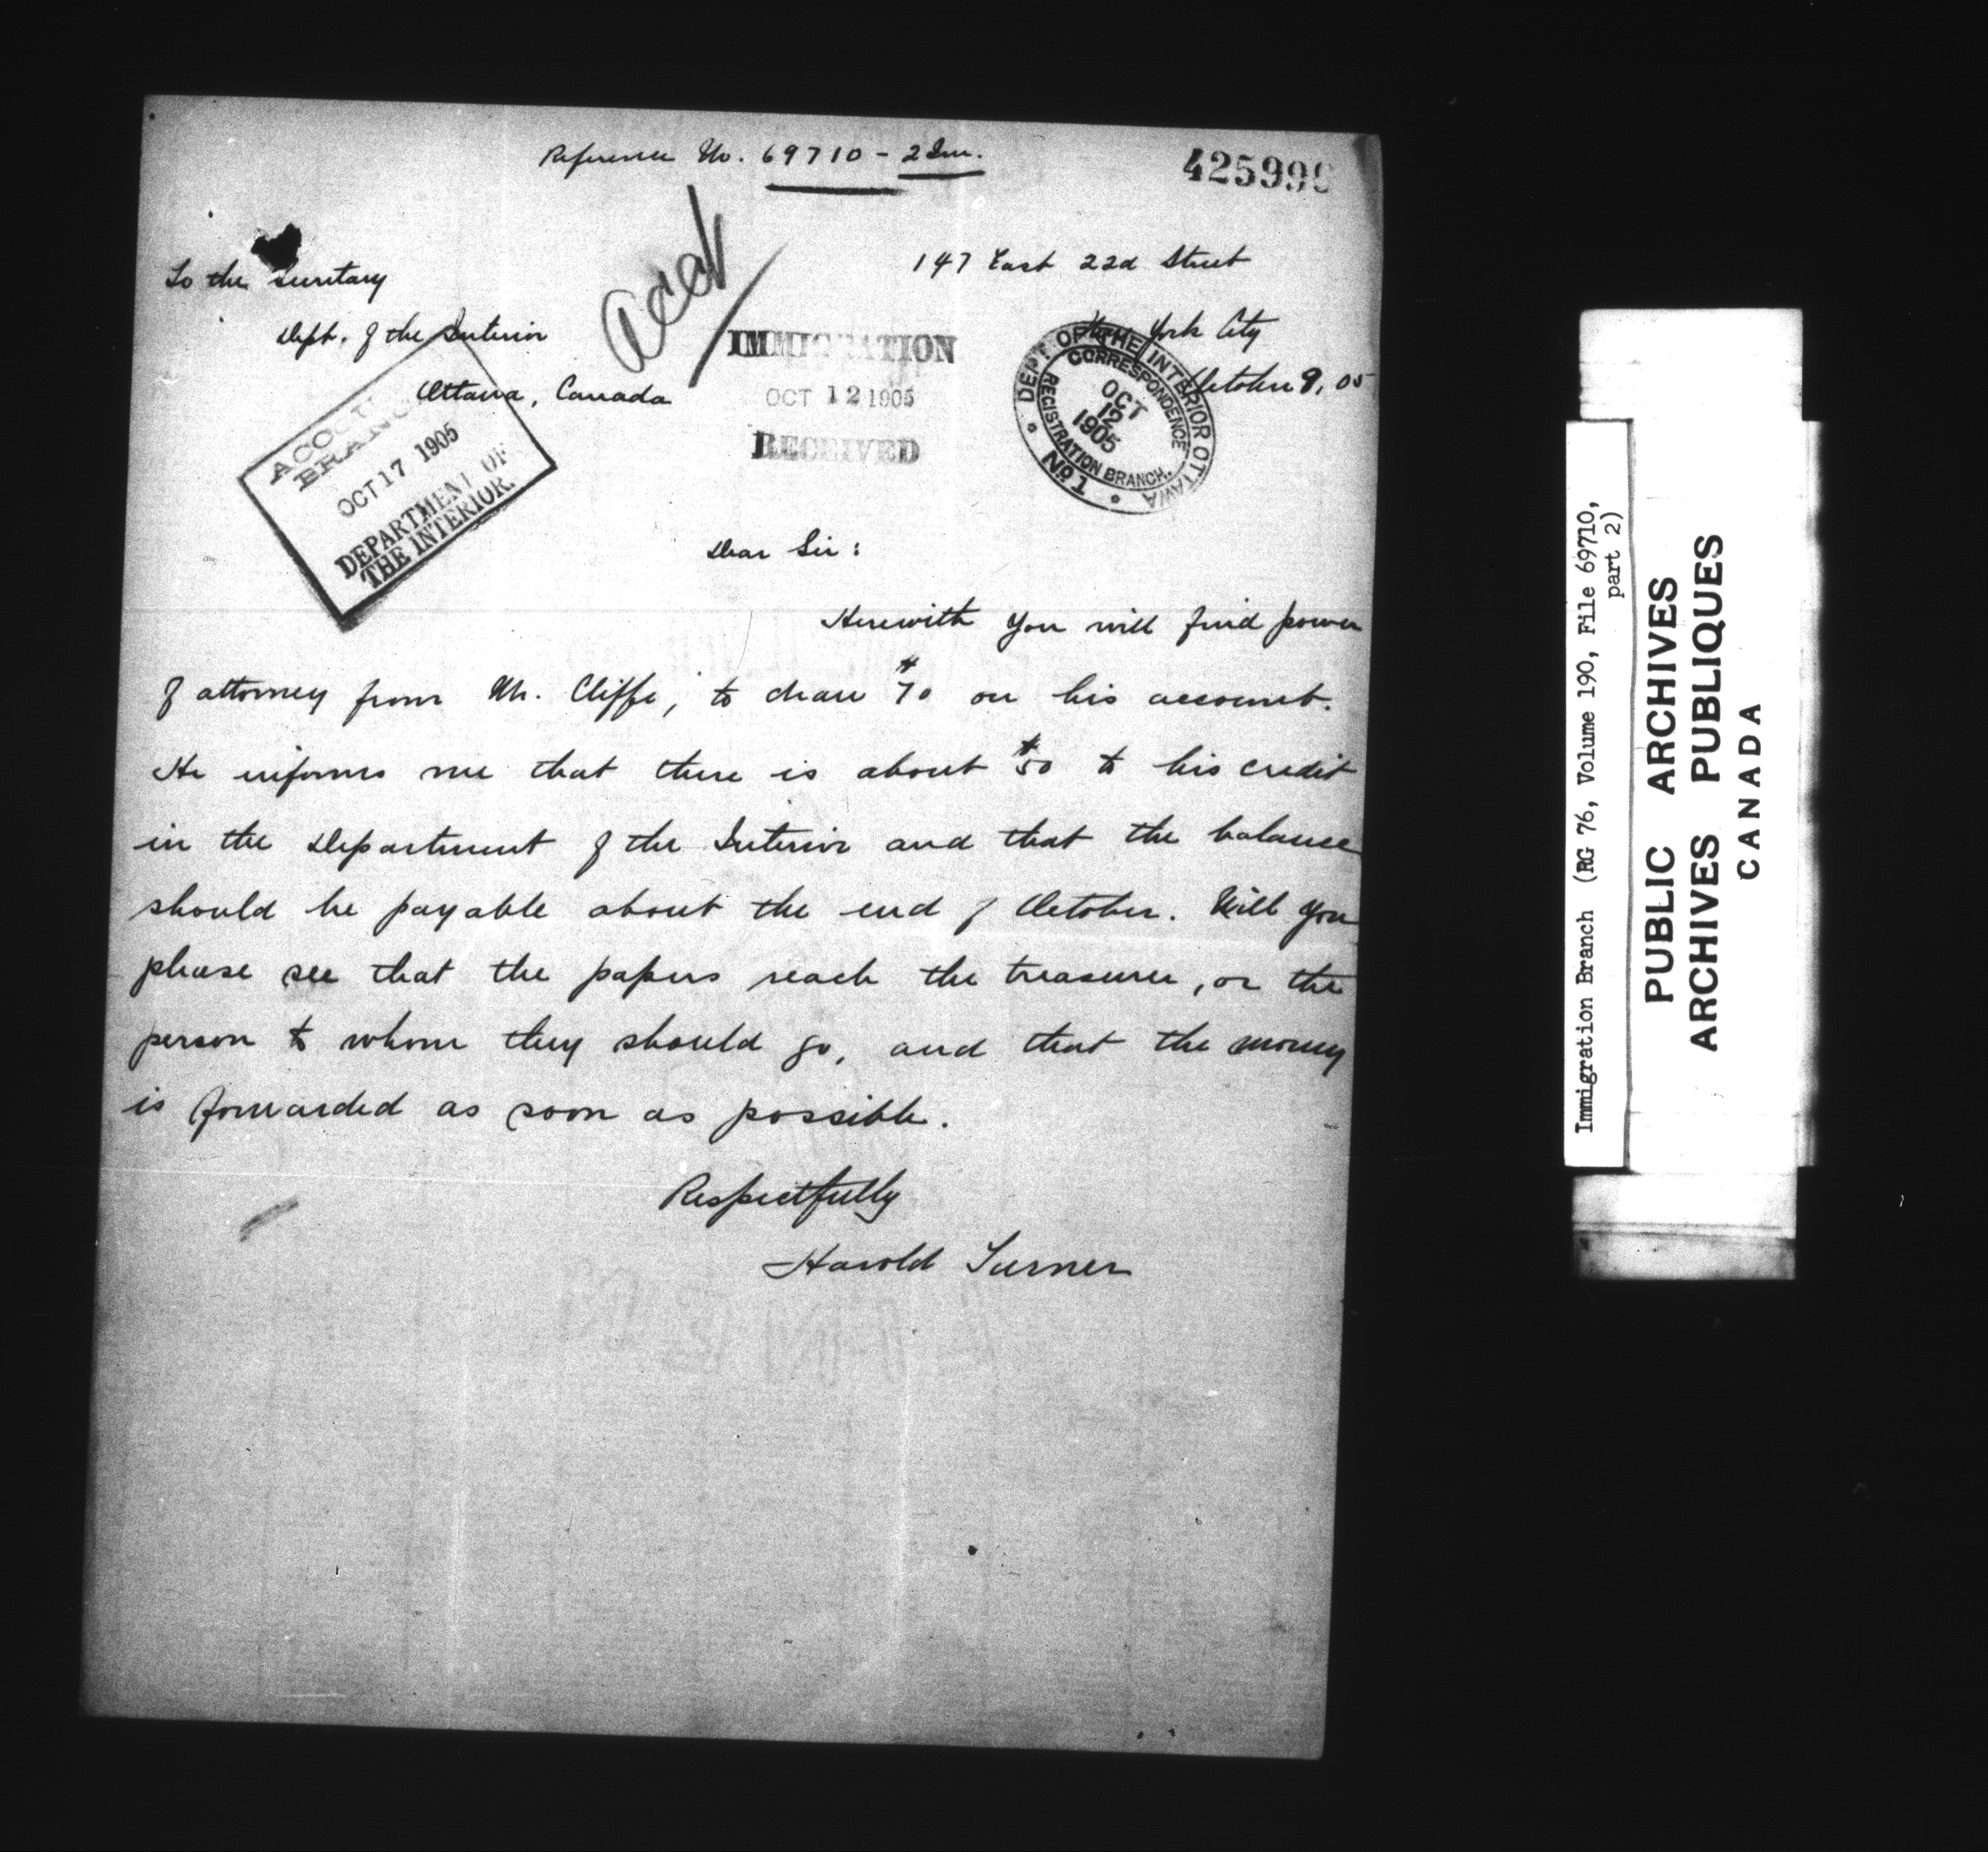 Reference No. 69710 - 2 Im.
425999
147 East 22d Street
To the Secretary
New York City
Dept. of the Interior
October 9, 05
Ottawa, Canada
IMMIGRATION
OCT 12 1905
RECEIVED
DEPT OF THE INTERIOR OTTAWA
CORRESPONDENCE
REGISTRATION BRANCH.
OCT
12
1905
No 1
ACCOUNTS
BRANCH
OCT 17 1905
DEPARTMENT OF
THE INTERIOR.
Dear Sir:
Herewith you will find power
of attorney from Mr. Cliffe, to draw $70 on his account.
He informs me that there is about $50 to his credit
in the Department of the Interior and that the balance
should be payable about the end of October. Will you
please see that the papers reach the treasurer, or the
person to whom they should go, and that the money
is forwarded as soon as possible.
Respectfully
Harold Turner
Immigration Branch (RG 76, Volume 190, File 69710,
part 2)
PUBLIC ARCHIVES
ARCHIVES PUBLIQUES
CANADA